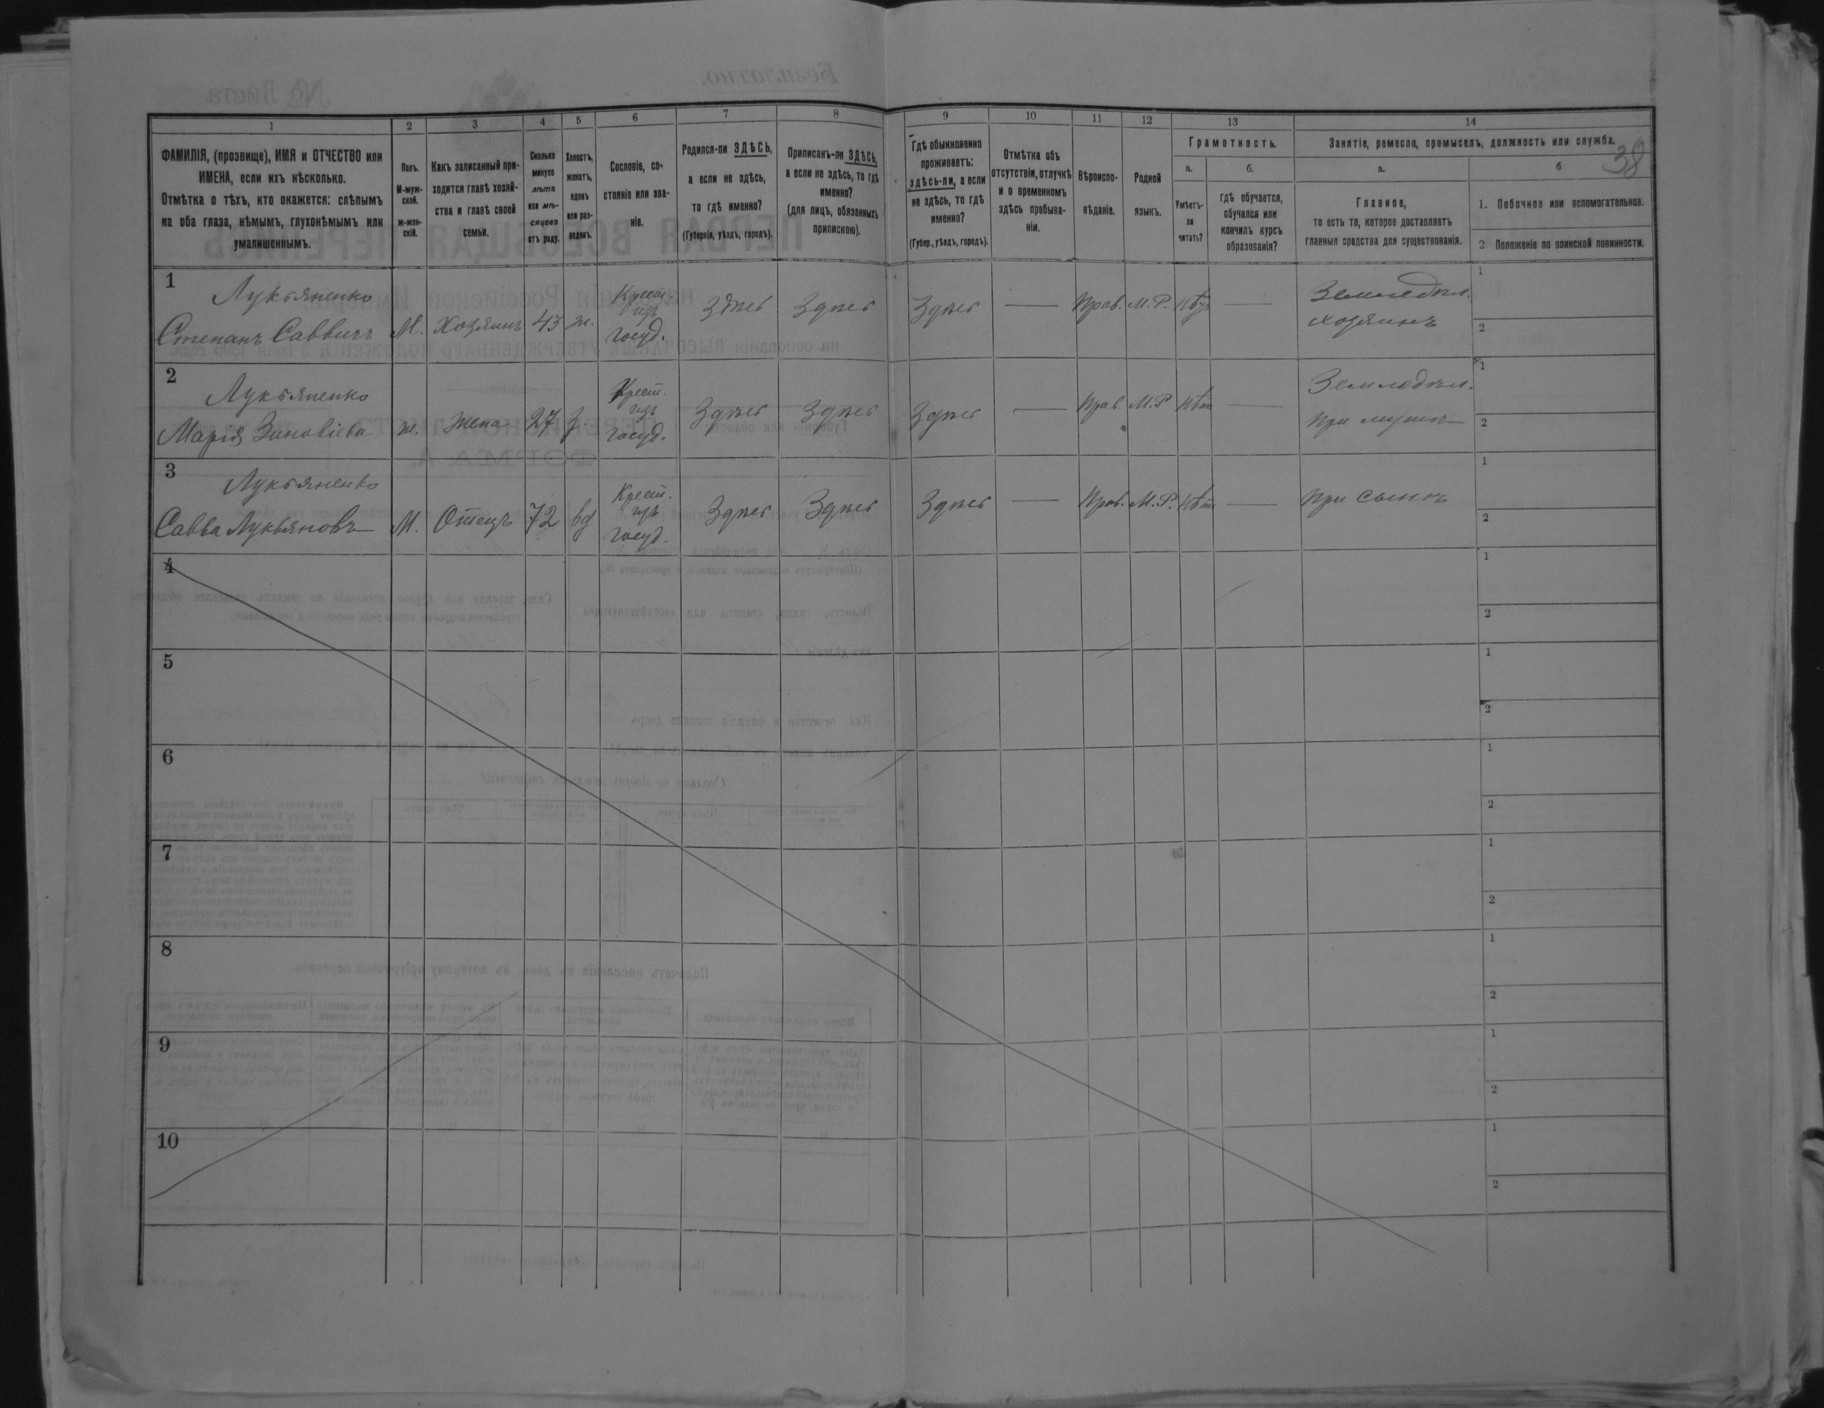 38
1 2 3 4 5 6 7 8 9 10 11 12 13 14
ФАМИЛІЯ, (прозвище), ИМЯ и ОТЧЕСТВО или
ИМЕНА, если ихъ нѣсколько.
Отмѣтка о тѣхъ, кто окажется: слѣпымъ
на оба глаза, нѣмымъ, глухонѣмымъ или
умалишеннымъ.
Полъ.
М-муж-
ской.
ж-жен-
скій.
Какъ записанный при-
ходится главѣ хозяй-
ства и главѣ своей
семьи.
Сколько
минуло
лѣтъ
или мѣ-
сяцевъ
отъ роду.
Холостъ,
женатъ,
вдовъ
или раз-
веденъ.
Сословіе, со-
стояніе или зва-
ніе.
Родился-ли ЗДѢСЬ,
а если не здѣсь,
то гдѣ именно?
(Губернія, уѣздъ, городъ).
Приписанъ-ли ЗДѢСЬ,
а если не здѣсь, то гдѣ
именно?
(для лицъ, обязанныхъ
припискою).
Гдѣ обыкновенно
проживаетъ:
здѣсь-ли, а если
не здѣсь, то гдѣ
именно?
(Губер., уѣздъ, городъ).
Отмѣтка объ
отсутствіи, отлучкѣ
и о временномъ
здѣсь пребыва-
ніи.
Вѣроиспо-
вѣданіе.
Родной
языкъ.
Грамотность.
а. б.
Умѣетъ-
ли
читать?
гдѣ обучается,
обучался или
кончилъ курсъ
образованія?
Занятіе, ремесло, промыселъ, должность или служба.
а. б
Главное,
то есть то, которое доставляетъ
главныя средства для существованія.
1. Побочное или вспомогательное.
2. Положеніе по воинской повинности.
1 Лукьяненко Крест. Земледѣл. 1
Степанъ Саввичъ М. Хозяинъ 43 ж. изъ госуд. Здѣсь Здѣсь Здѣсь — Прав. М.Р. — хозяинъ 2
2 Лукьяненко Крест. Земледѣл. 1
Марія Зиновіева ж. Жена 27 з. изъ госуд. Здѣсь Здѣсь Здѣсь — Прав М.Р Нѣт — при мужѣ 2
3 Лукьяненко Крест. 1
Савва Лукьяновъ М. Отецъ 72 вд изъ госуд. Здѣсь Здѣсь Здѣсь — Прав. М.Р. Нѣт — при сынѣ 2
4 1
2
5 1
2
6 1
2
7 1
2
8 1
2
9 1
2
10 1
2